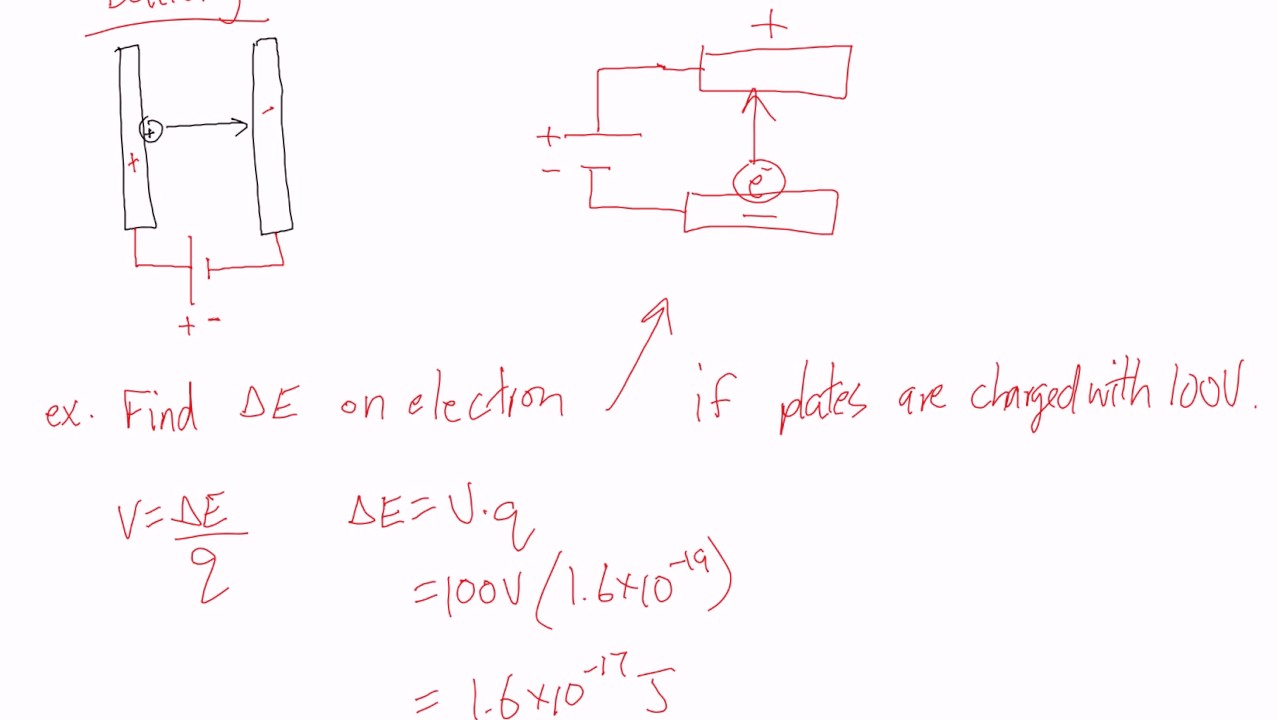 +
-
+
+
-
+
-
e⁻
-
+ -
ex. Find ΔE on electron if plates are charged with 100V.
V = ΔE/q ΔE = V·q
= 100V (1.6×10⁻¹⁹)
= 1.6×10⁻¹⁷ J